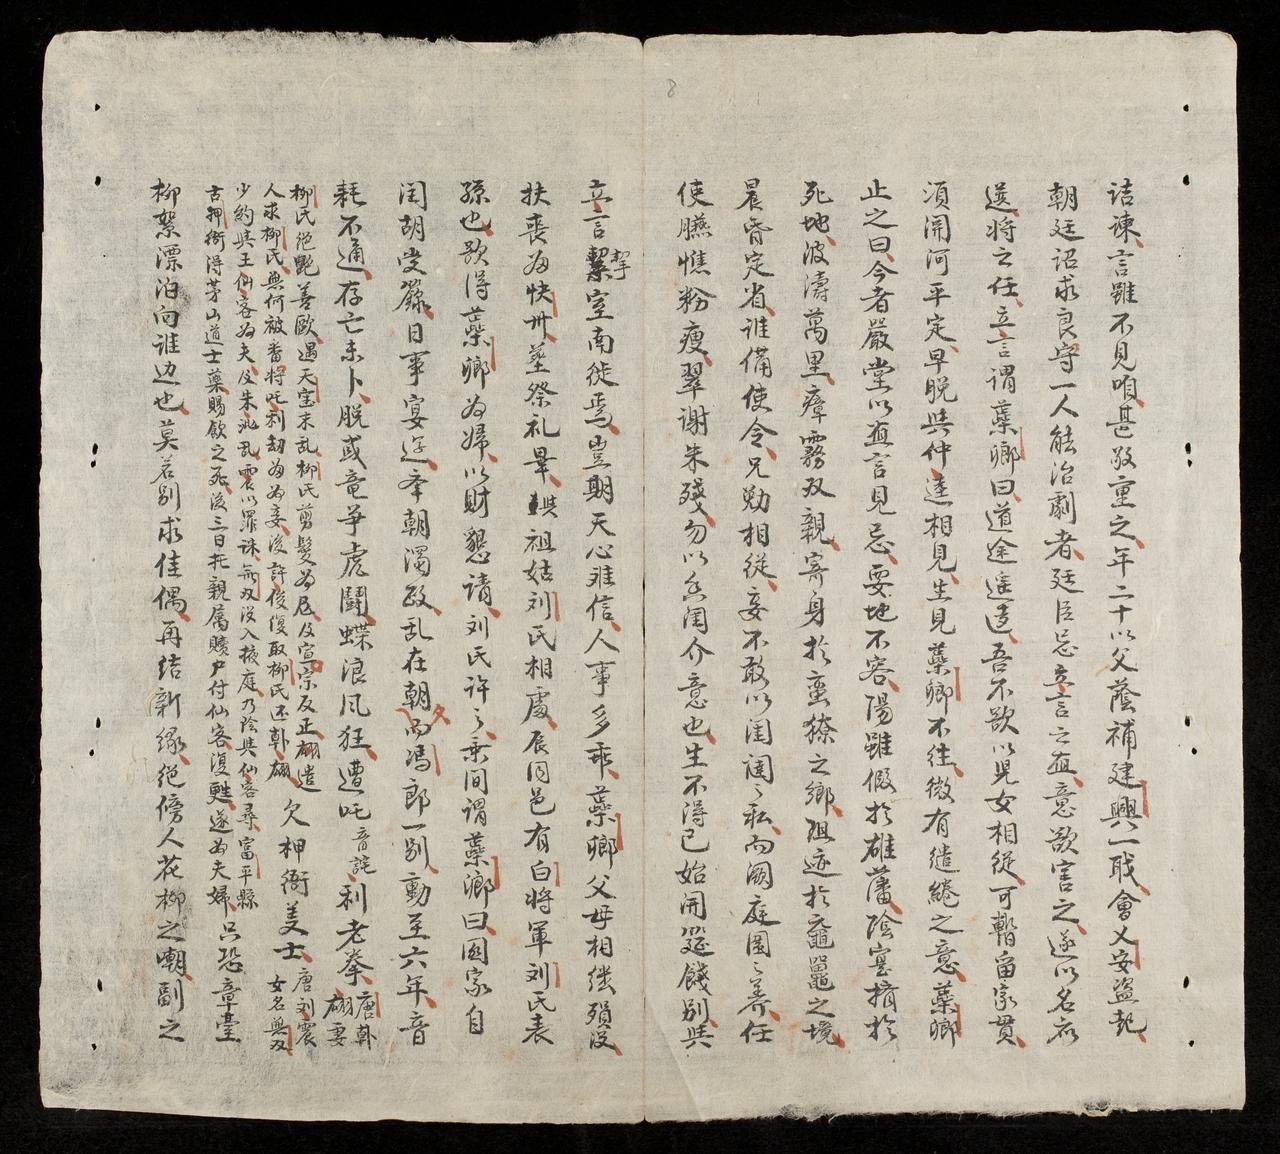 諮諫言雖不見咱甚敬重之年二十以父蔭補建興一戢會乂安盜起
朝廷詔求良守一人能治劇者廷臣忌立言之直意欲害之遂以名應
送將之任立言謂蘂卿曰道途遥遠吾不欲以児女相從可暫畄家貫
須開河平定早脱與仲逵相見生見蘂卿不徃微有繾綣之意蘂卿
止之曰今者嚴堂以直言見忌要地不容陽雖假於雄藩陰寔擠於
死地波濤萬里瘴霧双親寄身於蛮獠之鄉跙迹於黿鼉之境
晨昏定省誰備使令兄勤相從妾不敢以閨闥之私而闕庭闈之养任
使臙憔粉瘦翠謝朱殘勿以香闺介意也生不得已始開筵餞別與
立言挈室南徙焉豈期天心难信人事多乖蘂卿父母相継殞没
扶喪為快州塟祭礼畢與祖姑刘氏相處辰同邑有白將軍刘氏表
孫也欲得蘂卿为婦以財懇請刘氏許之乘间謂蘂卿曰國家自
闰胡受籙日事宴遊夆朝濁政乱在朝夕而馮郎一別動至六年音
耗不通存亡未卜脱或竜爭虎鬪蝶浪风狂遭吒音詫利老拳唐韩翃妻
柳氏绝艷善歐遇天宝末乱柳氏剪髮为尼及宣宗反正翃遣
人求柳氏無何被畨將吒利劫为妾後許俊復取柳氏还韩翃欠柙衙美士唐刘震女名無双
少約與王仙客为夫及朱泚乱震以罪诛無双没入掖庭乃陰與仙客尋富平縣
古押衙得茅山道士藥賜飲之死後三日托親属贖尸付仙客復甦遂为夫婦只恐章臺
柳絮漂泊向谁边也莫若别求佳偶再结新缘绝傍人花柳之嘲副之